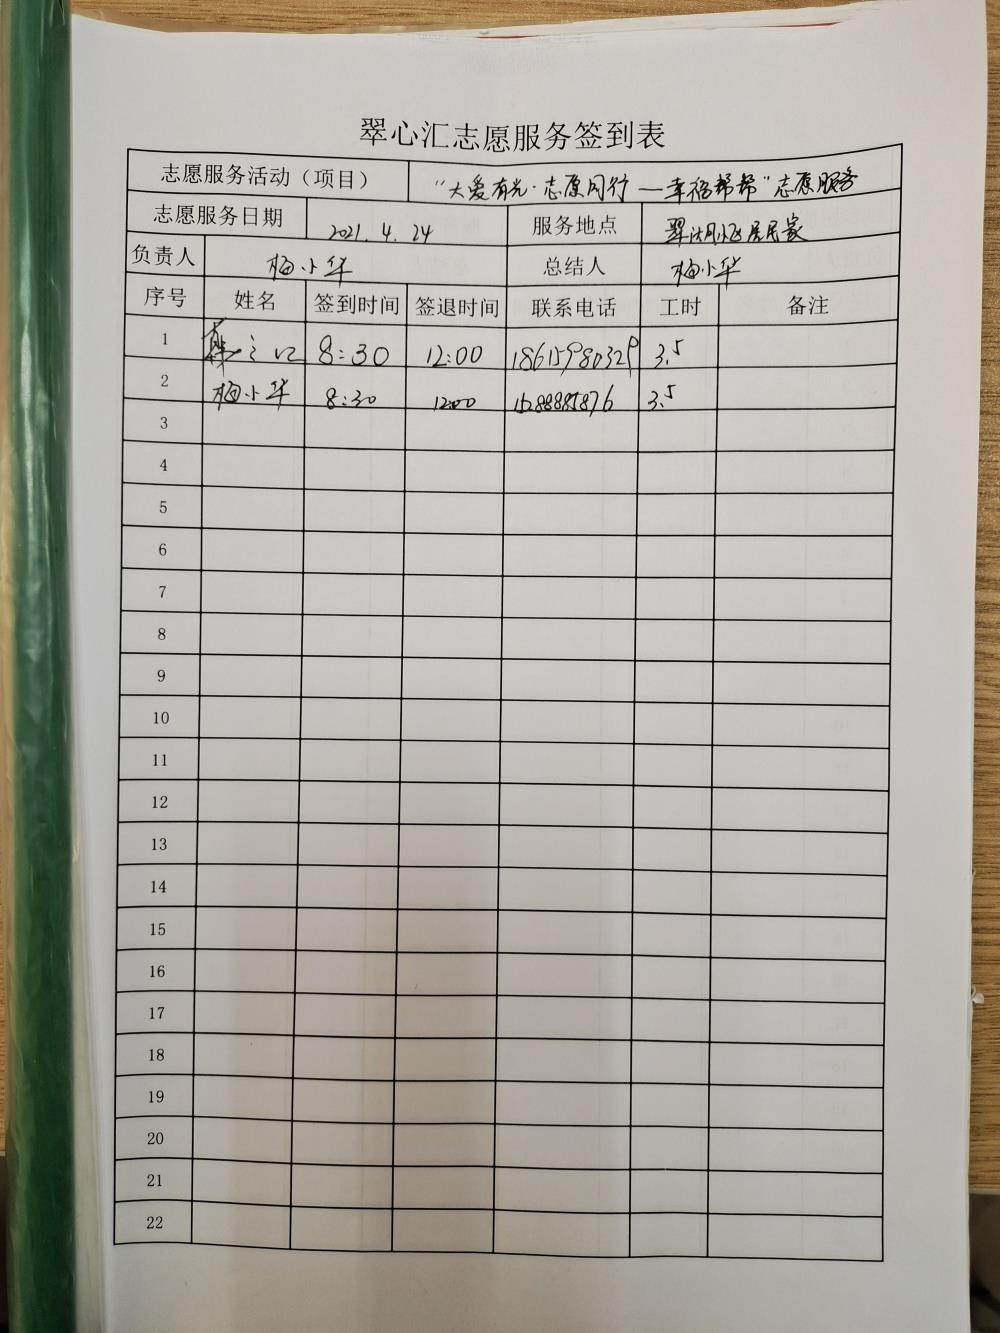 翠心汇志愿服务签到表
志愿服务活动（项目） “大爱有光·志愿同行—幸福帮帮”志愿服务
志愿服务日期 2021.4.24 服务地点 翠湖小区居民家
负责人 梅小华 总结人 梅小华
序号 姓名 签到时间 签退时间 联系电话 工时 备注
1 8:30 12:00 18615980329 3.5
2 梅小华 8:30 12:00 3.5
3
4
5
6
7
8
9
10
11
12
13
14
15
16
17
18
19
20
21
22